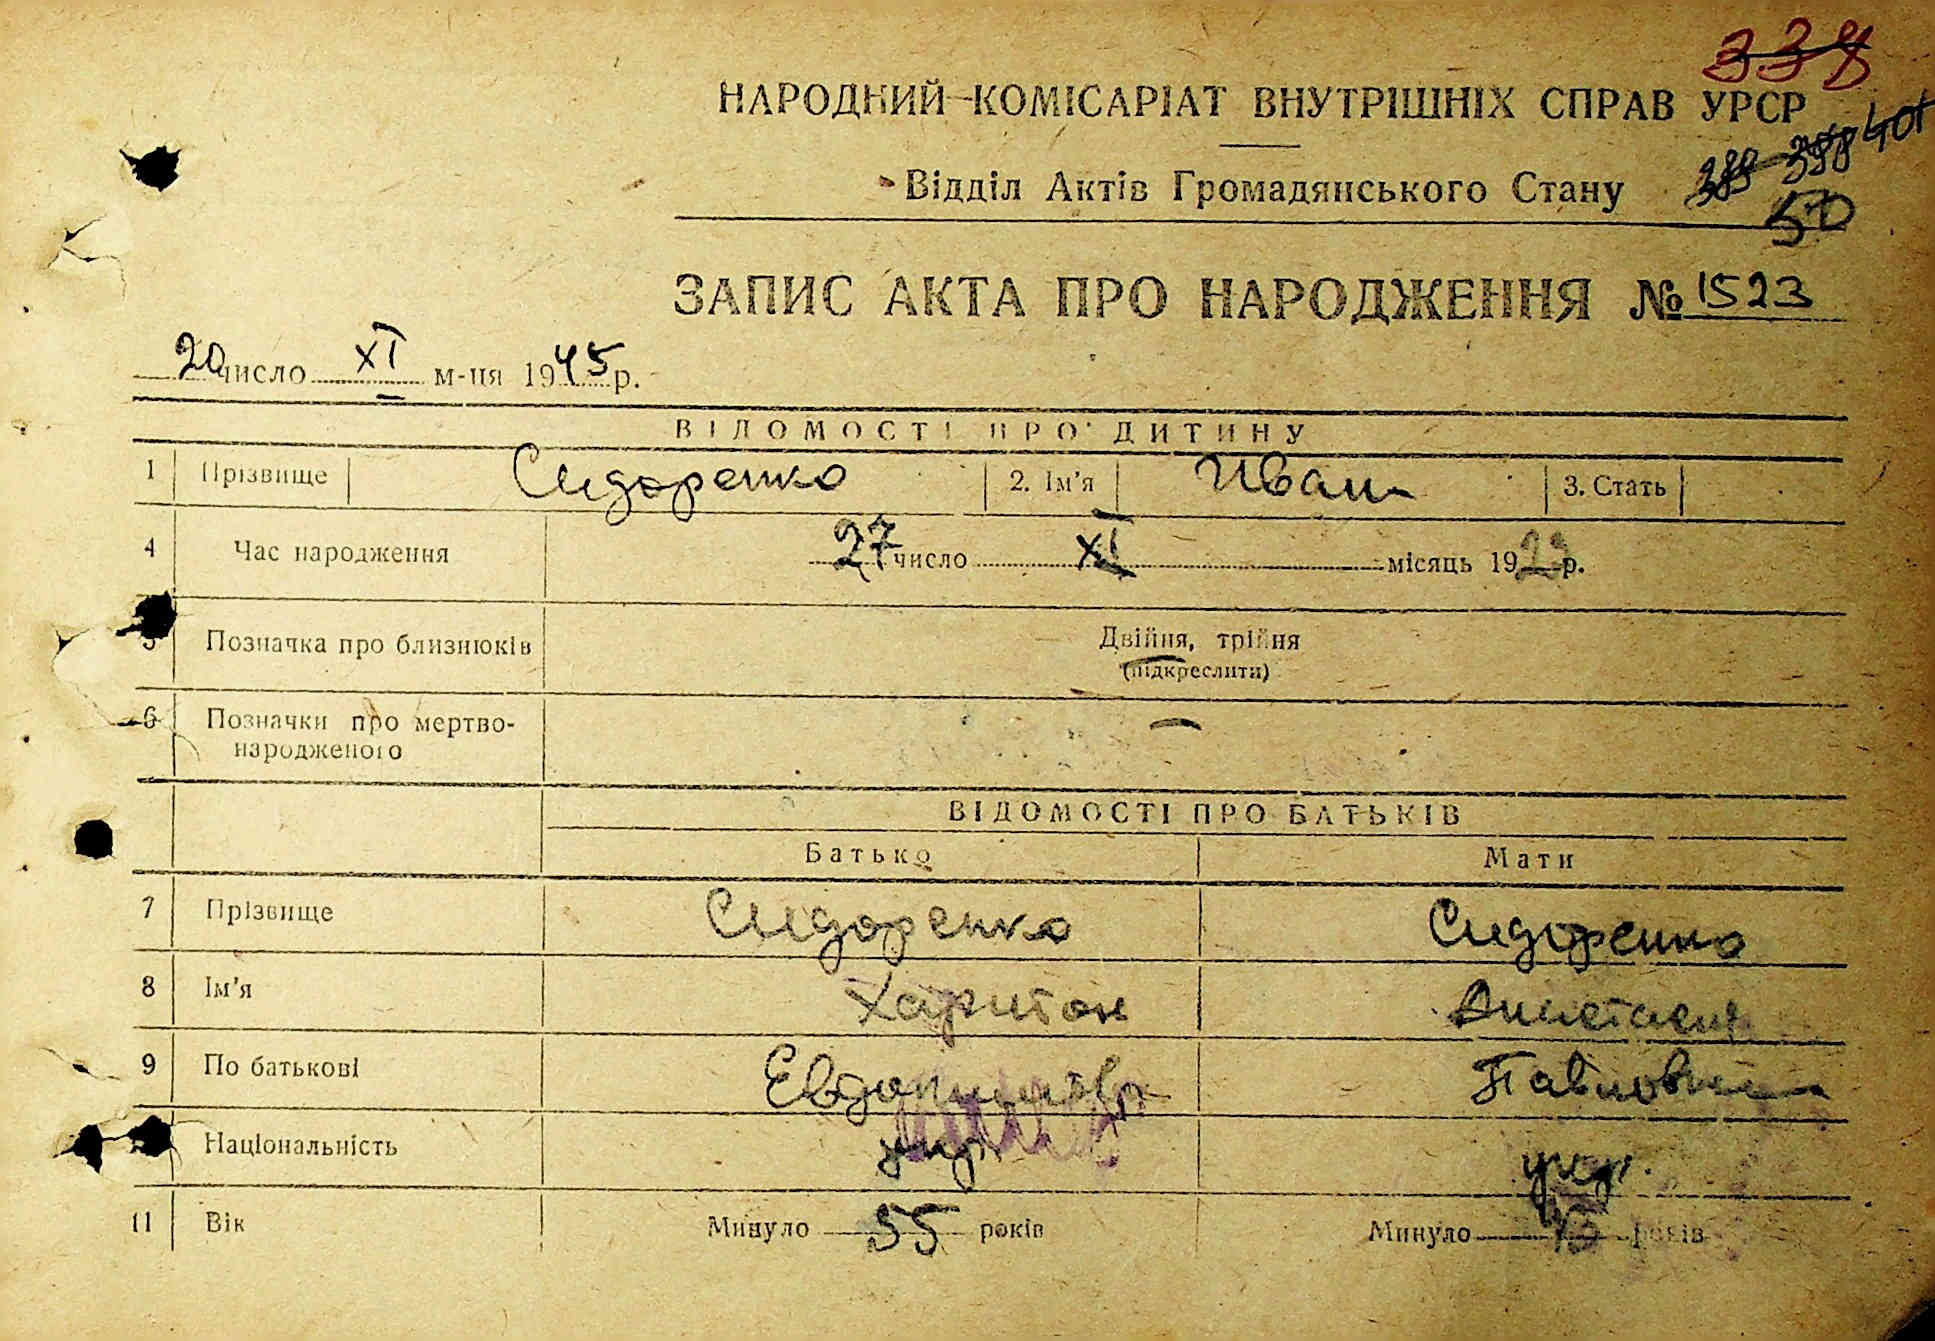 338
НАРОДНИЙ КОМІСАРІАТ ВНУТРІШНІХ СПРАВ УРСР
Відділ Актів Громадянського Стану
50
ЗАПИС АКТА ПРО НАРОДЖЕННЯ № 1523
20 число XI м-ця 1945 р.
ВІДОМОСТІ ПРО ДИТИНУ
1 Прізвище Сидоренко 2. Ім'я Иван 3. Стать
4 Час народження 27 число XI місяць 1929 р.
5 Позначка про близнюків Двійня, трійня
(підкреслити)
6 Позначки про мертво-
народженого —
ВІДОМОСТІ ПРО БАТЬКІВ
Батько Мати
7 Прізвище Сидоренко Сидоренко
8 Ім'я Харитон Анастасия
9 По батькові Павловна
Національність укр. укр.
11 Вік Минуло 55 років Минуло років